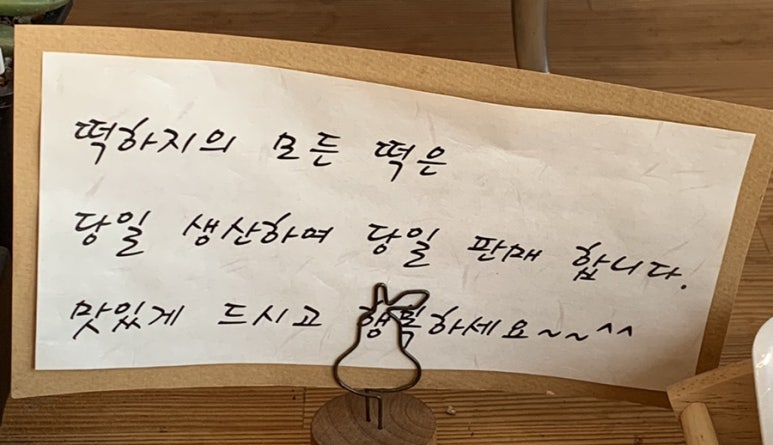 떡하지의 모든 떡은
당일 생산하여 당일 판매 합니다.
맛있게 드시고 행복하세요~~^^